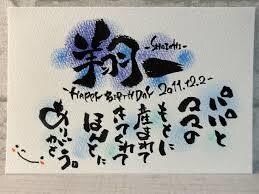 翔一
-SHOICHI-
-HAPPY BIRTHDAY 2011.12.2-
パパと
ママの
もとに
産まれて
きてくれて
ほんとに
ありがとう。